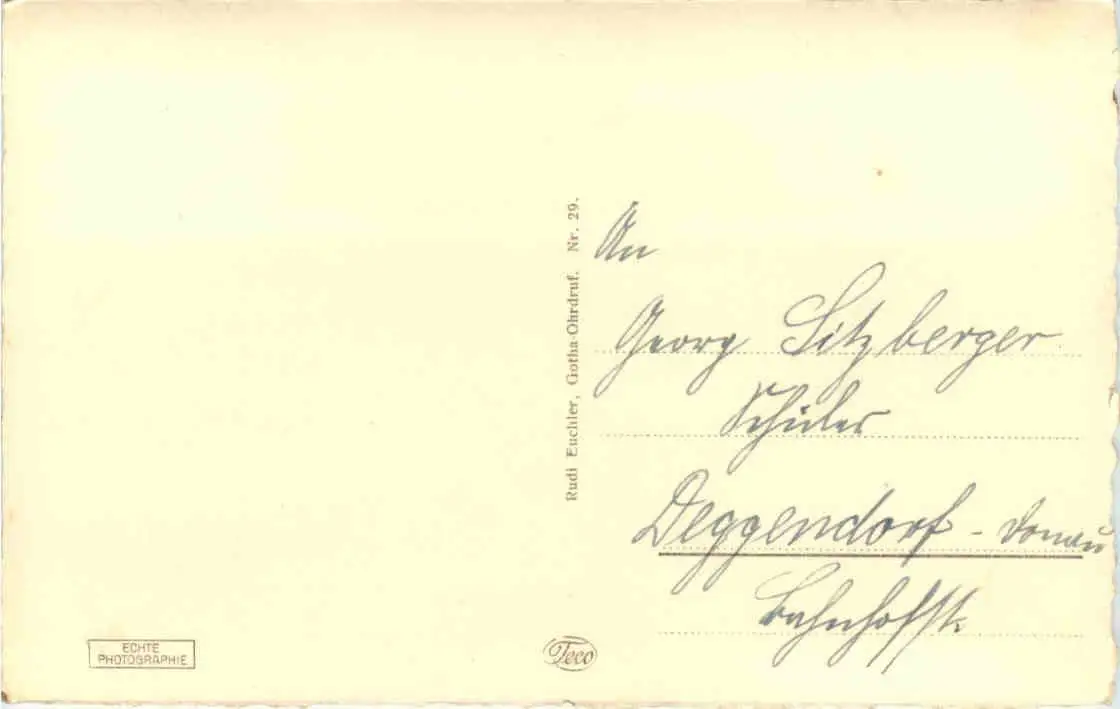 An
Georg Sitzberger
Schüler
Deggendorf - Donau
Bahnhofstr.
Rudi Euchler, Gotha-Ohrdruf. Nr. 29.
ECHTE
PHOTOGRAPHIE
Teco